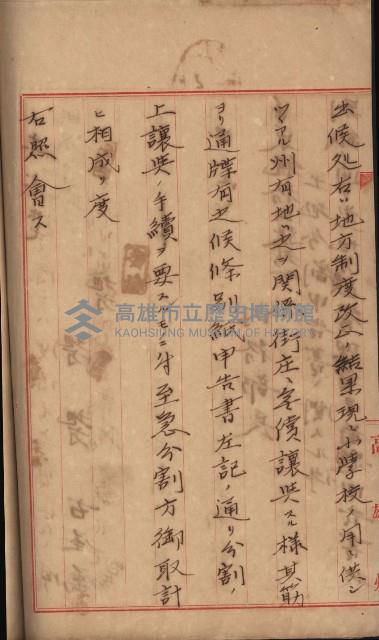 出候処右ハ地方制度改正ノ結果現ニ小學校ノ用ニ供シ
ツヽアル州有地ハ之ヲ関係街庄ニ無償讓與スル様其筋
ヨリ通牒有之候條別紙申告書左記ノ通リ分割ノ
上讓與ノ手續ヲ要スルモニ付至急分割方御取計
ヒ相成リ度
右照會ス
高雄州
高雄市立歷史博物館
KAOHSIUNG MUSEUM OF HISTORY